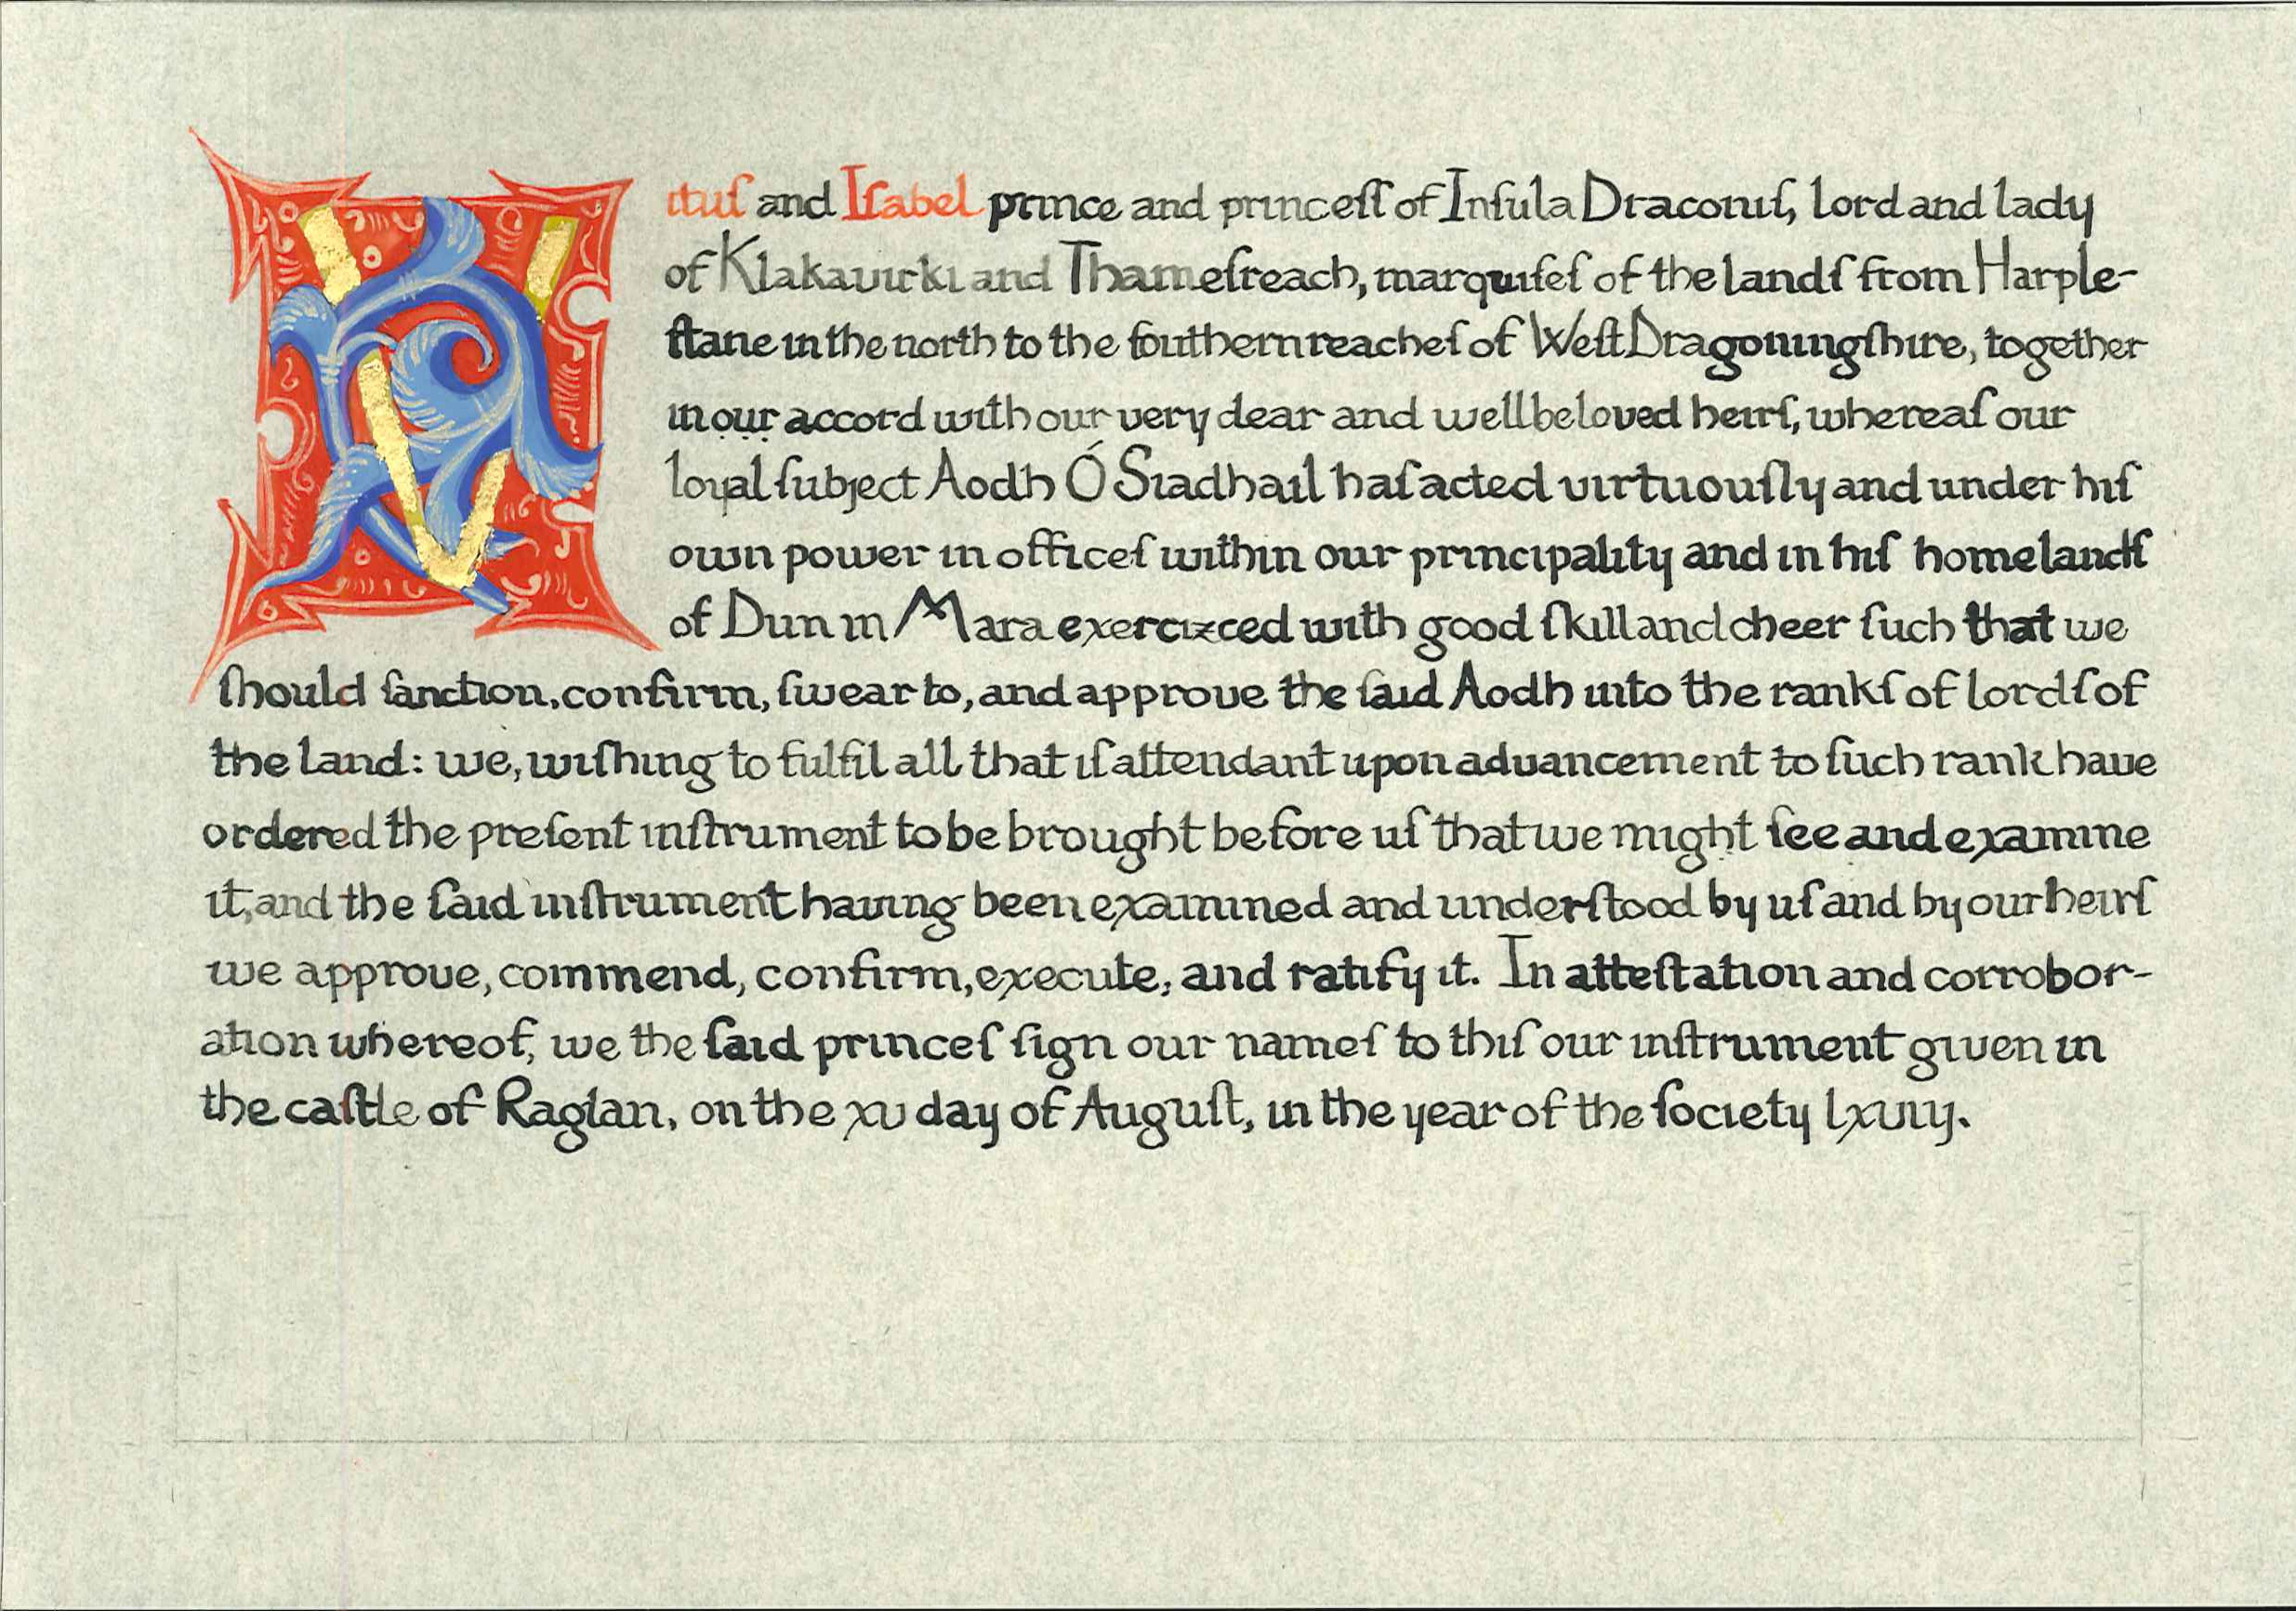 Vituſ and Iſabel prince and princeſſ of Inſula Draconiſ, lord and lady
of Klakauirki and Thameſreach, marquiſeſ of the landſ from Harple-
ſtane in the north to the ſouthern reacheſ of Weſt Dragoningſhire, together
in our accord with our very dear and well beloved heirſ, whereaſ our
loyal ſubject Aodh Ó Siadhail haſ acted virtuouſly and under hiſ
own power in officeſ within our principality and in hiſ homelandſ
of Dun in Mara exercizced with good ſkill and cheer ſuch that we
ſhould ſanction, confirm, ſwear to, and approue the ſaid Aodh into the rankſ of lordſ of
the land: we, wiſhing to fulfil all that iſ attendant upon aduancement to ſuch rank haue
ordered the preſent inſtrument to be brought before uſ that we might ſee and examine
it, and the ſaid inſtrument hauing been examined and underſtood by uſ and by our heirſ
we approue, commend, confirm, execute, and ratify it. In atteſtation and corrobor-
ation whereof, we the ſaid princeſ ſign our nameſ to thiſ our inſtrument giuen in
the caſtle of Raglan, on the xv day of Auguſt, in the year of the ſociety lxuiij.